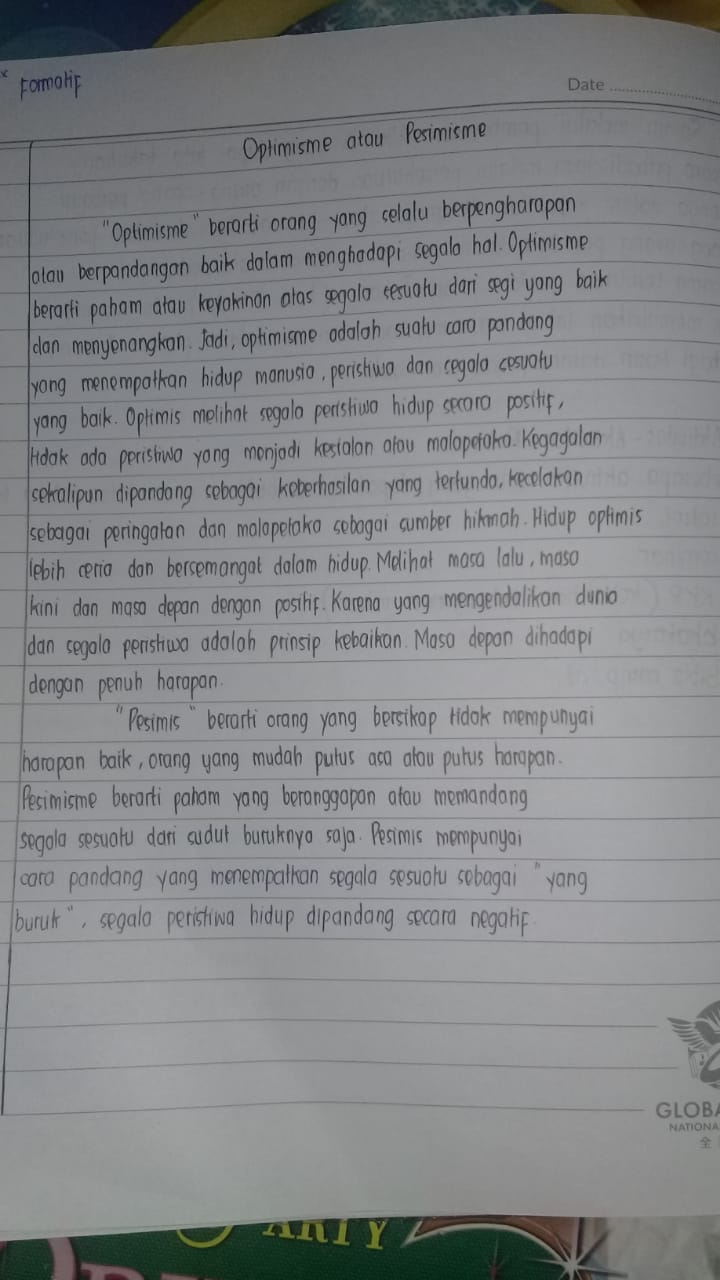 * Formatif
Date
Optimisme atau Pesimisme
"Optimisme" berarti orang yang selalu berpengharapan
atau berpandangan baik dalam menghadapi segala hal. Optimisme
berarti paham atau keyakinan atas segala sesuatu dari segi yang baik
dan menyenangkan. Jadi, optimisme adalah suatu cara pandang
yang menempatkan hidup manusia, peristiwa dan segala sesuatu
yang baik. Optimis melihat segala peristiwa hidup secara positif,
tidak ada peristiwa yang menjadi kesialan atau malapetaka. Kegagalan
sekalipun dipandang sebagai keberhasilan yang tertunda, kecelakan
sebagai peringatan dan malapetaka sebagai sumber hikmah. Hidup optimis
lebih ceria dan bersemangat dalam hidup. Melihat masa lalu, masa
kini dan masa depan dengan positif. Karena yang mengendalikan dunia
dan segala peristiwa adalah prinsip kebaikan. Masa depan dihadapi
dengan penuh harapan.
"Pesimis" berarti orang yang bersikap tidak mempunyai
harapan baik, orang yang mudah putus asa atau putus harapan.
Pesimisme berarti paham yang beranggapan atau memandang
segala sesuatu dari sudut buruknya saja. Pesimis mempunyai
cara pandang yang menempatkan segala sesuatu sebagai "yang
buruk", segala peristiwa hidup dipandang secara negatif.
GLOBA
NATIONA
全
ARTY